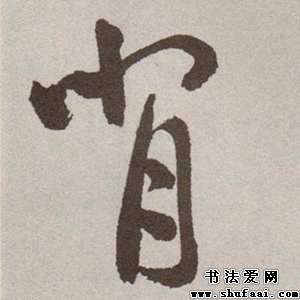 肖
书法爱网
www.shufaai.com